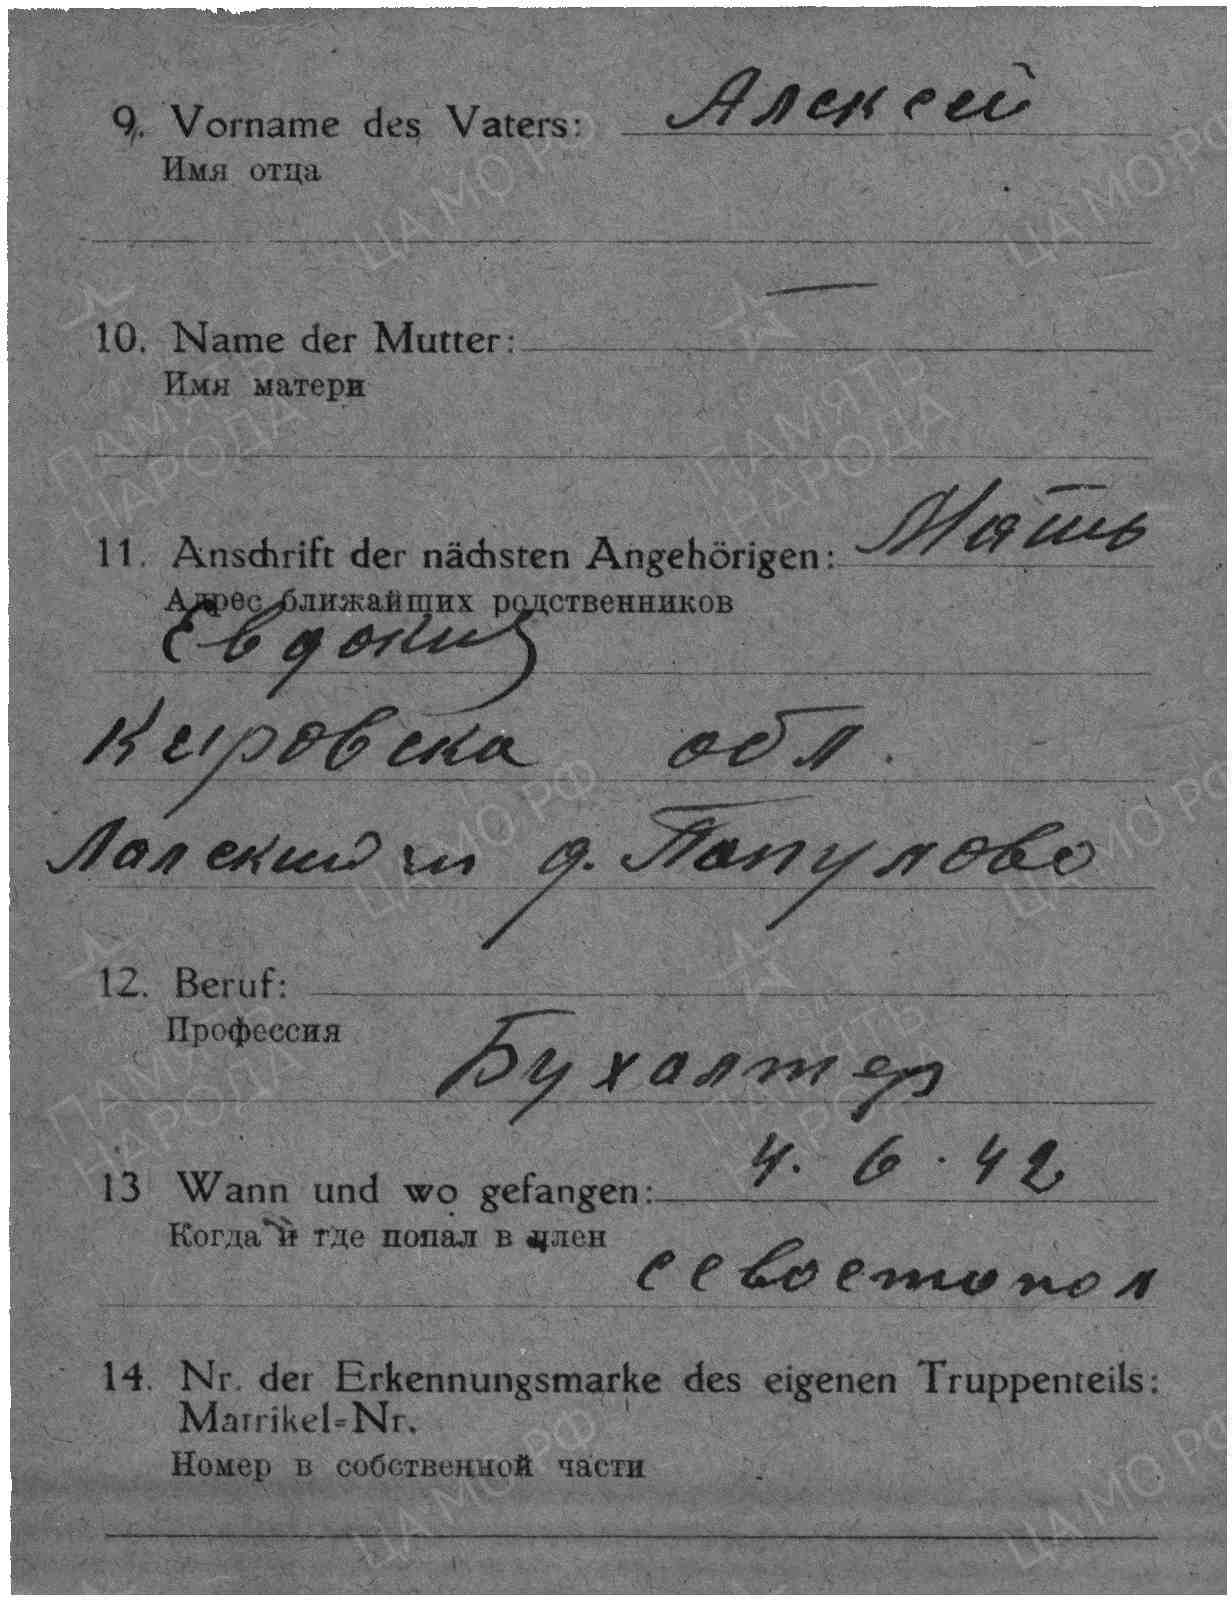 9. Vorname des Vaters: Алексей
Имя отца
10. Name der Mutter: —
Имя матери
11. Anschrift der nächsten Angehörigen: Мать
Адрес ближайших родственников
Евдокия
Кировска обл.
Лалский д. Папулово
12. Beruf:
Профессия
Бухалтер
13 Wann und wo gefangen: 4. 6. 42
Когда и где попал в плен
севостопол
14. Nr. der Erkennungsmarke des eigenen Truppenteils:
Matrikel=Nr.
Номер в собственной части
ЦА МО РФ
ПАМЯТЬ
НАРОДА